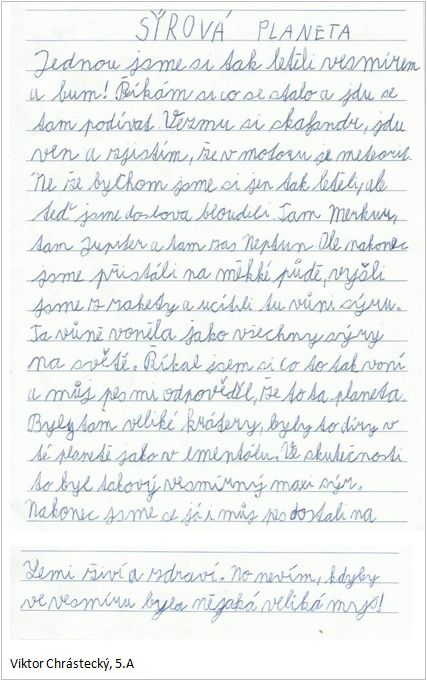 SÝROVÁ PLANETA
Jednou jsme si tak letěli vesmírem
a bum! Říkám si co se stalo a jdu se
tam podívat. Vezmu si skafandr, jdu
ven a zjistím, že v motoru je meteorit.
Ne že bychom jsme si jen tak letěly, ale
teď jsme doslova bloudili. Tam Merkur,
tam Jupiter a tam zas Neptun. Ale nakonec
jsme přistáli na měkké půdě, vyšli
jsme z rakety a ucítili tu vůni sýru.
Ta vůně voněla jako všechny sýry
na světě. Říkal jsem si co to tak voní
a můj pes mi odpověděl, že to ta planeta.
Byly tam veliké krátery, byly to díry v
té planetě jako v ementálu. Ve skutečnosti
to byl takový vesmírný maxi sýr.
Nakonec jsme se já i můj pes dostali na
Zemi živí a zdraví. No nevím, kdyby
ve vesmíru byla nějaká veliká myš!
Viktor Chrástecký, 5.A